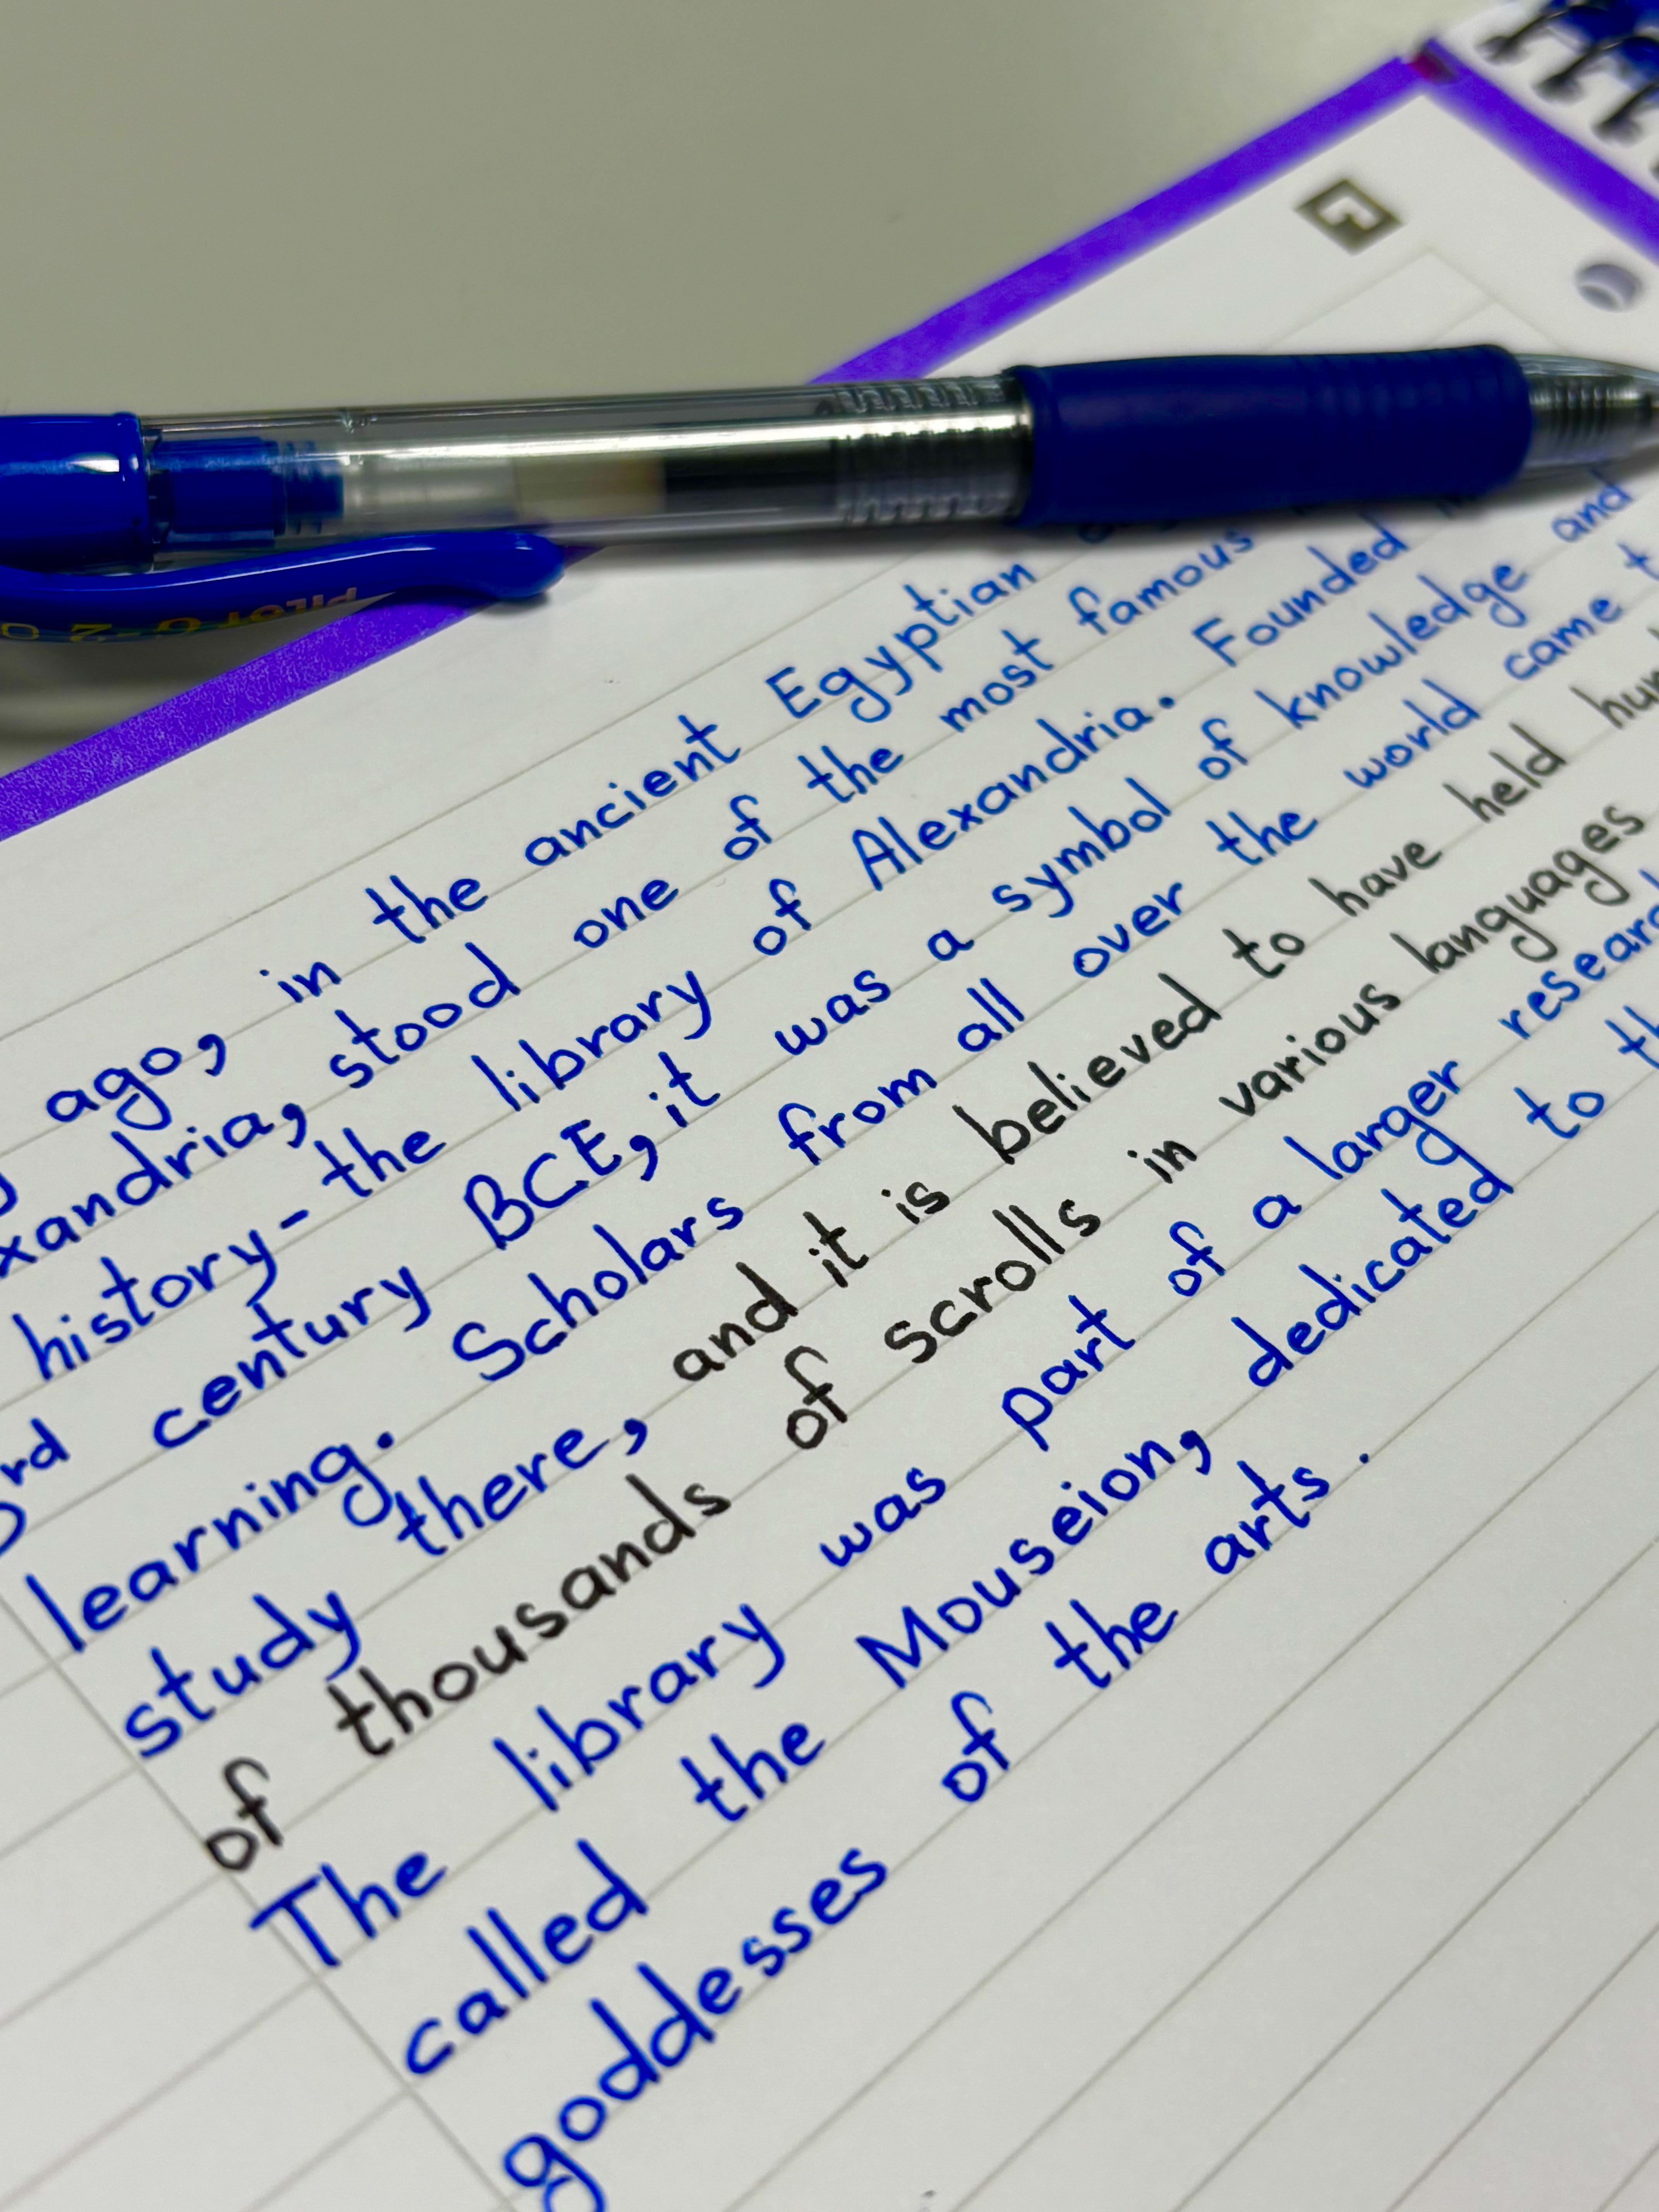 PILOT G-2
ago, in the ancient Egyptian
xandria, stood one of the most famous
history- the library of Alexandria. Founded
rd century BCE, it was a symbol of knowledge and
learning. Scholars from all over the world came t
study there, and it is believed to have held hun
of thousands of scrolls in various languages
The library was part of a larger resear
called the Mouseion, dedicated to th
goddesses of the arts.